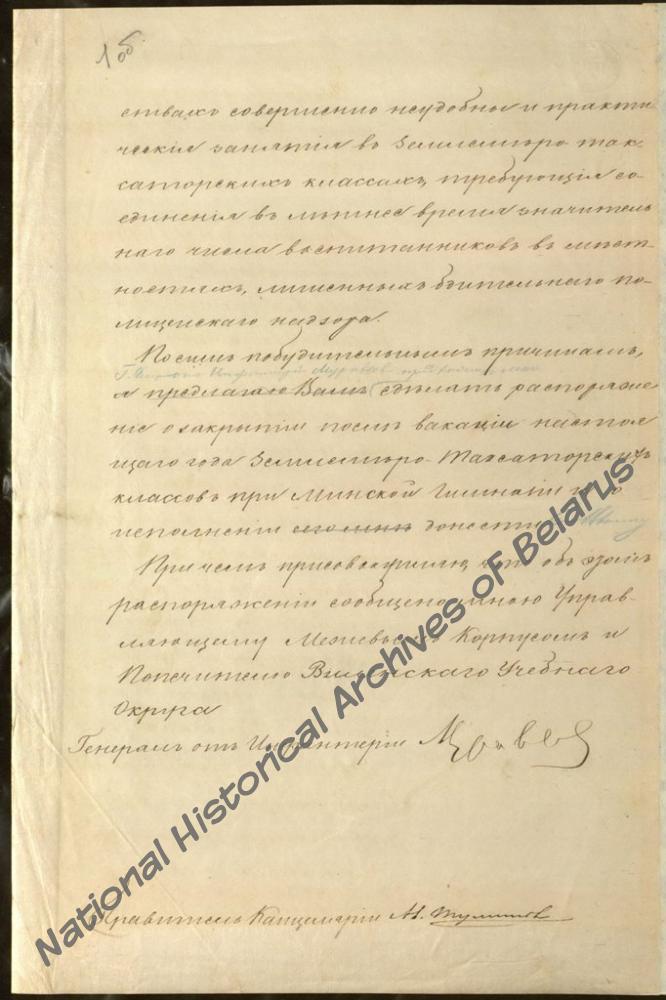 1 об.
ствахъ совершенно неудобны и практи
ческія занятія въ Землемѣро-так-
саторскихъ классахъ, требующія со-
единенія въ лѣтнее время значитель
наго числа воспитанниковъ въ мѣст
ностяхъ, лишенныхъ бдительнаго по-
лицейскаго надзора.
По симъ побудительнымъ причинамъ,
Г. Инфантеріи Муравьевъ
я предлагаю Вамъ сдѣлать распоряже
ніе о закрытіи послѣ вакаціи настоя
щаго года Землемѣро-Таксаторскихъ
классовъ при Минской Гимназіи и о
исполненіи мнѣ донести
При чемъ присовокупляю, что объ этомъ
распоряженіи сообщено мною Управ-
ляющему Межевымъ Корпусомъ и
Попечителю Виленскаго Учебнаго
Округа
Генералъ отъ Инфантеріи Муравьев
Правитель Канцеляріи А. Туминов
National Historical Archives of Belarus